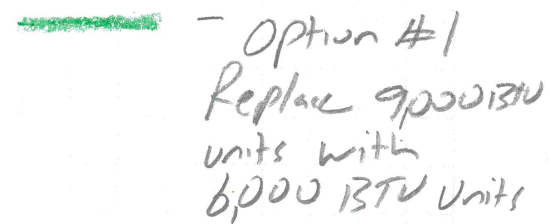 - Option #1
Replace 9,000 BTU
units with
6,000 BTU units